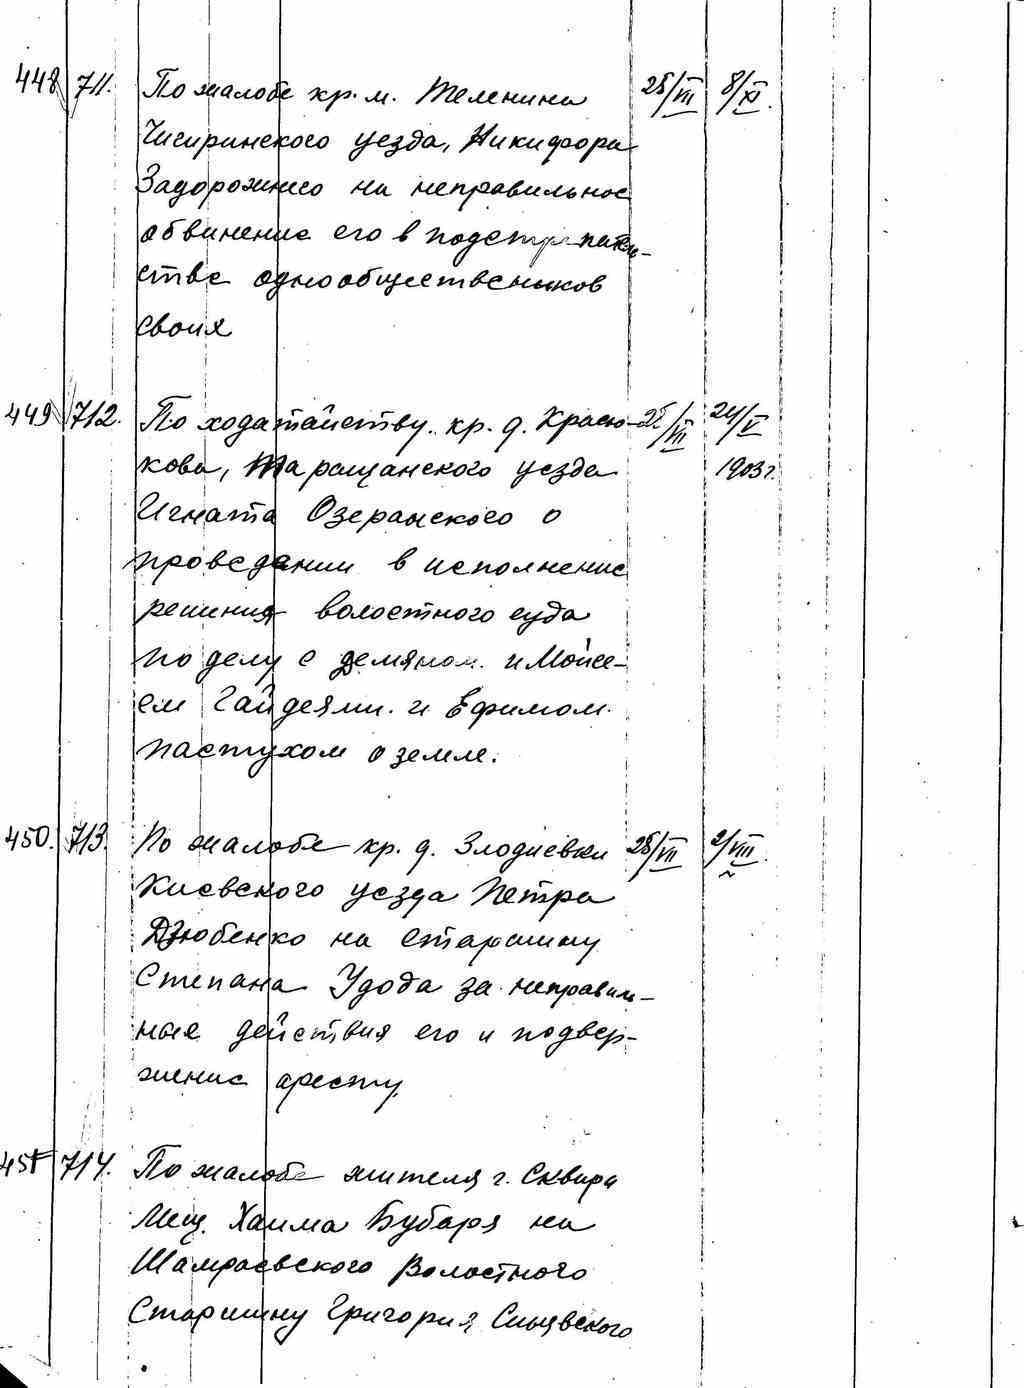 448 711. По жалобе кр. м. Телепина 25/VII 8/XI.
Чигиринского уезда, Никифора
Задорожнего на неправильное
обвинение его в подстрекатель-
стве однообщественников
своих
449 712. По ходатайству кр. д. Красю- 25/VII 24/V
кова, Таращанского уезда 1903 г.
Игната Озеранского о
проведении в исполнение
решения волостного суда
по делу с Демяном и Мойсе-
ем Гайдеями и Ефимом
Пастухом о земле.
450. 713. По жалобе кр. д. Злодиевки 25/VII 2/VIII.
Киевского уезда Петра
Дзюбенко на старшину
Степана Удода за неправиль-
ные действия его и подвер-
жение аресту.
451 714. По жалобе жителя г. Сквира
Мещ. Хаима Бубаря на
Шамраевского Волостного
Старшину Григория